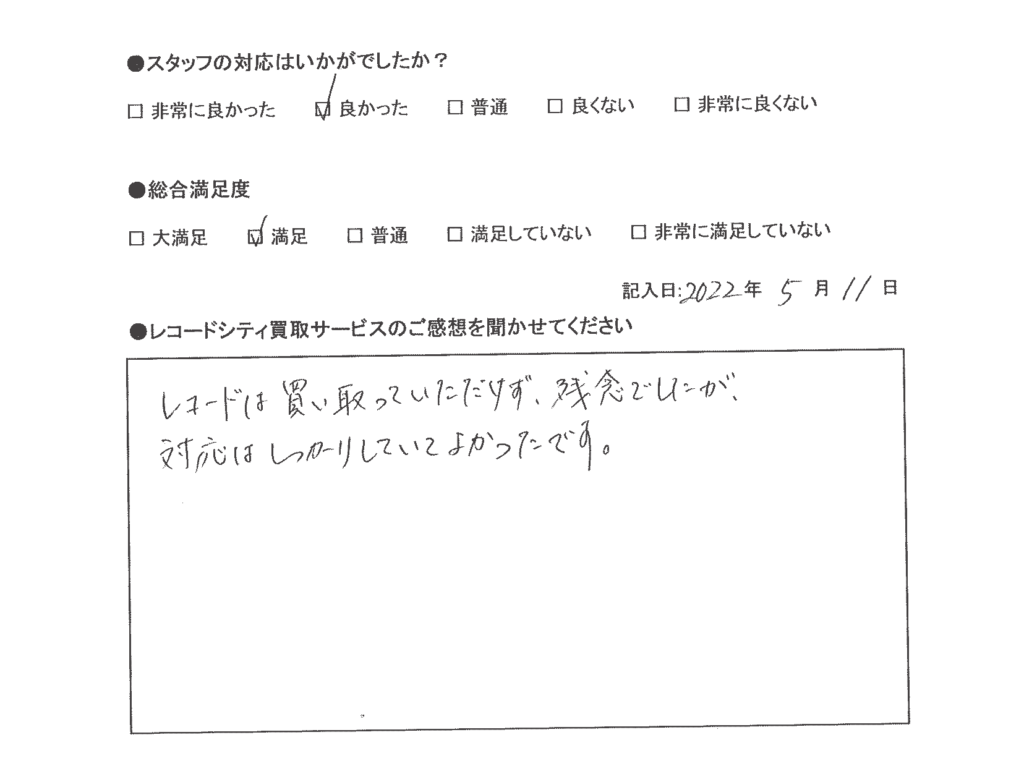 ●スタッフの対応はいかがでしたか？
□ 非常に良かった ☑ 良かった □ 普通 □ 良くない □ 非常に良くない
●総合満足度
□ 大満足 ☑ 満足 □ 普通 □ 満足していない □ 非常に満足していない
記入日:2022年 5 月 11 日
●レコードシティ買取サービスのご感想を聞かせてください
レコードは買い取っていただけず、残念でしたが、
対応はしっかりしていてよかったです。